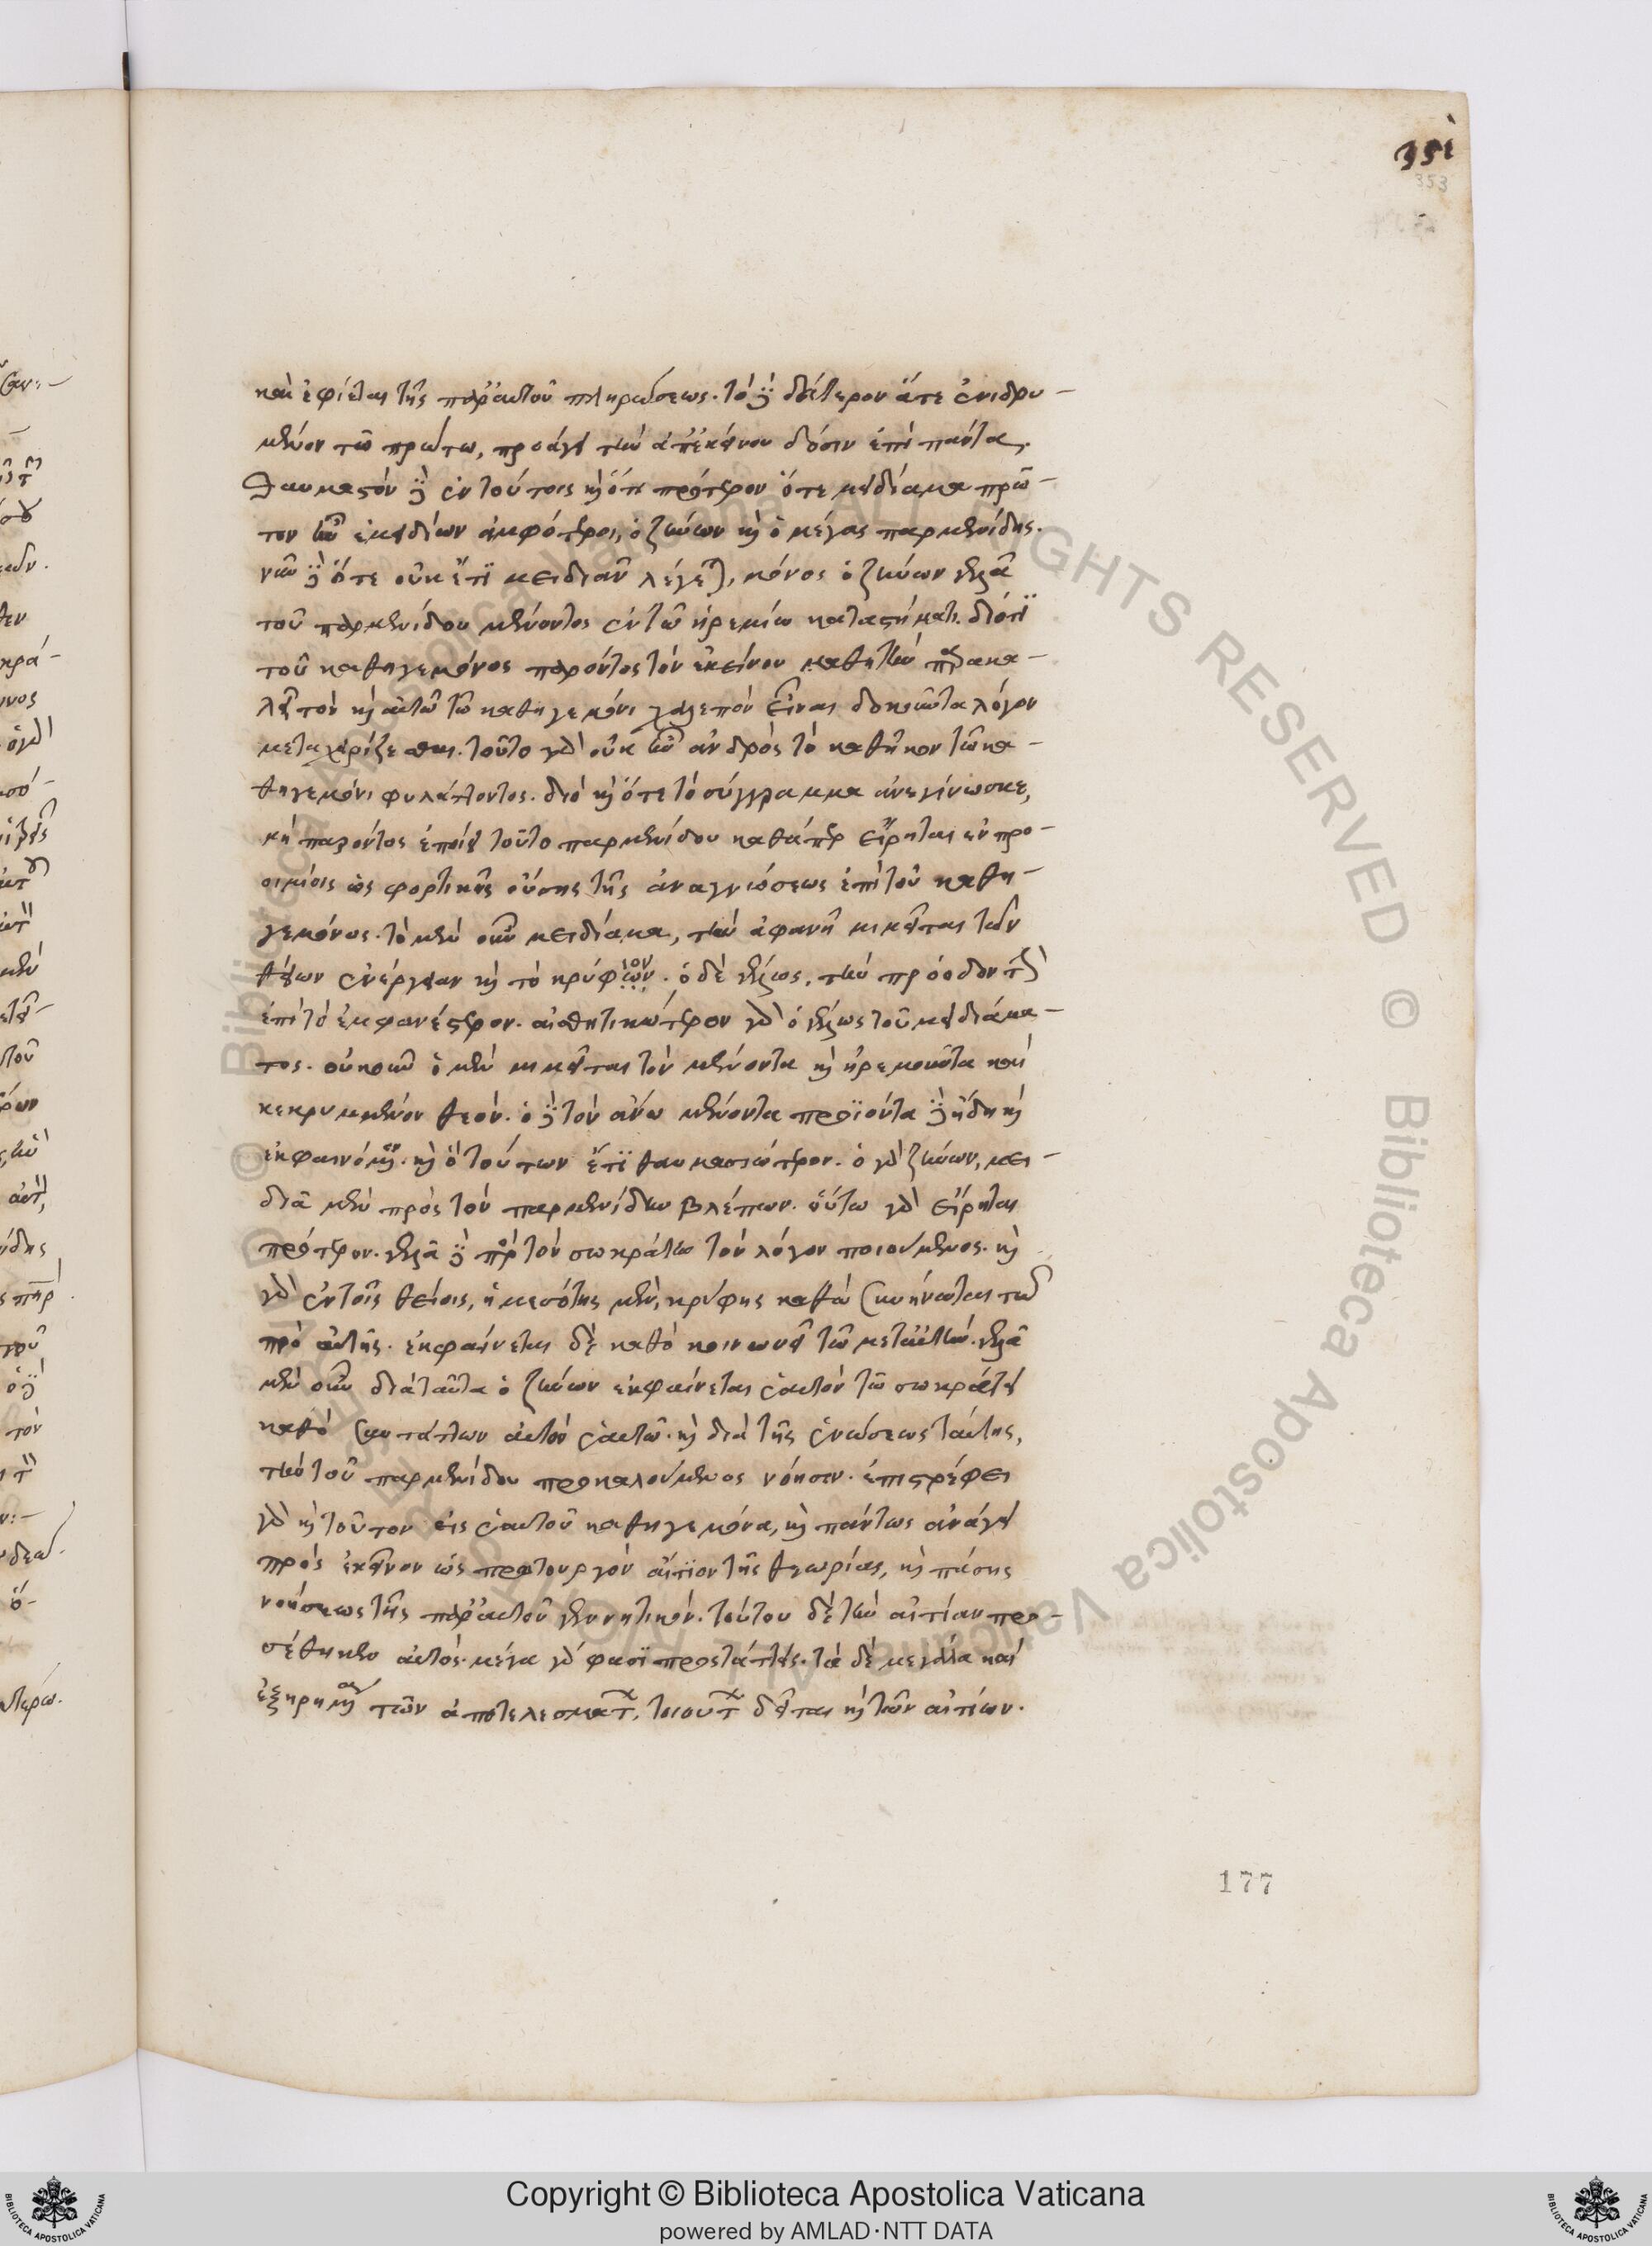 351
353
καὶ ἐφίεται τῆς παρ' αὐτοῦ πληρώσεως. τὸ δὲ δεύτερον ἅτε ἐνιδρυ-
μένον τῷ πρώτῳ, προάγει τὴν ἀπ' ἐκείνου δόσιν ἐπὶ πάντα.
Θαυμαστὸν δὲ ἐν τούτοις καὶ ὅτι πρότερον ὅτε μειδίαμα πρῶ-
τον ἦν ἐμειδίων ἀμφότεροι, ὁ ζήνων καὶ ὁ μέγας παρμενίδης.
νῦν δὲ ὅτε οὐκ ἔτι μειδιᾶν λέγεται, μόνος ὁ ζήνων γελᾷ
τοῦ παρμενίδου μένοντος ἐν τῷ ἠρεμίῳ καταστήματι. διότι
τοῦ καθηγεμόνος παρόντος τὸν ἐκείνου μαθητὴν παρακα-
λεῖ τὸν καὶ αὐτῷ τῷ καθηγεμόνι χαλεπὸν εἶναι δοκοῦντα λόγον
μεταχειρίζεσθαι. τοῦτο γὰρ οὐκ ἦν ἀνδρὸς τὸ καθῆκον τῷ κα-
θηγεμόνι φυλάττοντος. διὸ καὶ ὅτε τὸ σύγγραμμα ἀνεγίνωσκε,
μὴ παρόντος ἐποίει τοῦτο παρμενίδου καθάπερ εἴρηται ἐν προ-
οιμίοις ὡς φορτικῆς οὔσης τῆς ἀναγνώσεως ἐπὶ τοῦ καθη-
γεμόνος. τὸ μὲν οὖν μειδίαμα, τὴν ἀφανῆ μιμεῖται τῶν
θείων ἐνέργειαν καὶ τὸ κρύφιον. ὁ δὲ γέλως, τὴν πρόοδον αὐτῶν
ἐπὶ τὸ ἐμφανέστερον. αἰσθητικώτερον γὰρ ὁ γέλως τοῦ μειδιάμα-
τος. οὐκοῦν ὁ μὲν μιμεῖται τὸν μένοντα καὶ ἠρεμοῦντα καὶ
κεκρυμμένον θεόν. ὁ δὲ τὸν ἄνω μένοντα προϊόντα δὲ ἤδη καὶ
ἐκφαινόμενον. καὶ ὃ τούτων ἔτι θαυμασιώτερον. ὁ γὰρ ζήνων, μει-
διᾷ μὲν πρὸς τὸν παρμενίδην βλέπων. οὕτω γὰρ εἴρηται
πρότερον. γελᾷ δὲ πρὸς τὸν σωκράτην τὸν λόγον ποιούμενος. καὶ
γὰρ ἐν τοῖς θείοις, ἡ μεσότης μὲν, κρύφιος καθὸ συνήνωται τῷ
πρὸ αὐτῆς. ἐκφαίνεται δὲ καθὸ κοινωνεῖ τῷ μετ' αὐτήν. γελᾷ
μὲν οὖν διὰ ταῦτα ὁ ζήνων ἐκφαίνεται ἑαυτὸν τῷ σωκράτει
καθὸ συντάττων αὐτὸν ἑαυτῷ. καὶ διὰ τῆς ἑνώσεως ταύτης,
τὴν τοῦ παρμενίδου προκαλούμενος νόησιν. ἐπιστρέφει
γὰρ καὶ τοῦτον εἰς ἑαυτοῦ καθηγεμόνα, καὶ πάντως ἀνάγει
πρὸς ἐκεῖνον ὡς πρωτουργὸν αἴτιον τῆς θεωρίας, καὶ πάσης
νοήσεως τῆς παρ' αὐτοῦ γεννητικόν. τούτου δὲ τὴν αἰτίαν προ-
σέθηκεν αὐτός. μέγα γὰρ φασὶ προστάττεις. τὰ δὲ μεγάλα καὶ
ἐξηρημένα τῶν ἀποτελεσμάτων, τοιούτων δεῖται καὶ τῶν αἰτίων.
177
Copyright © Biblioteca Apostolica Vaticana
powered by AMLAD·NTT DATA